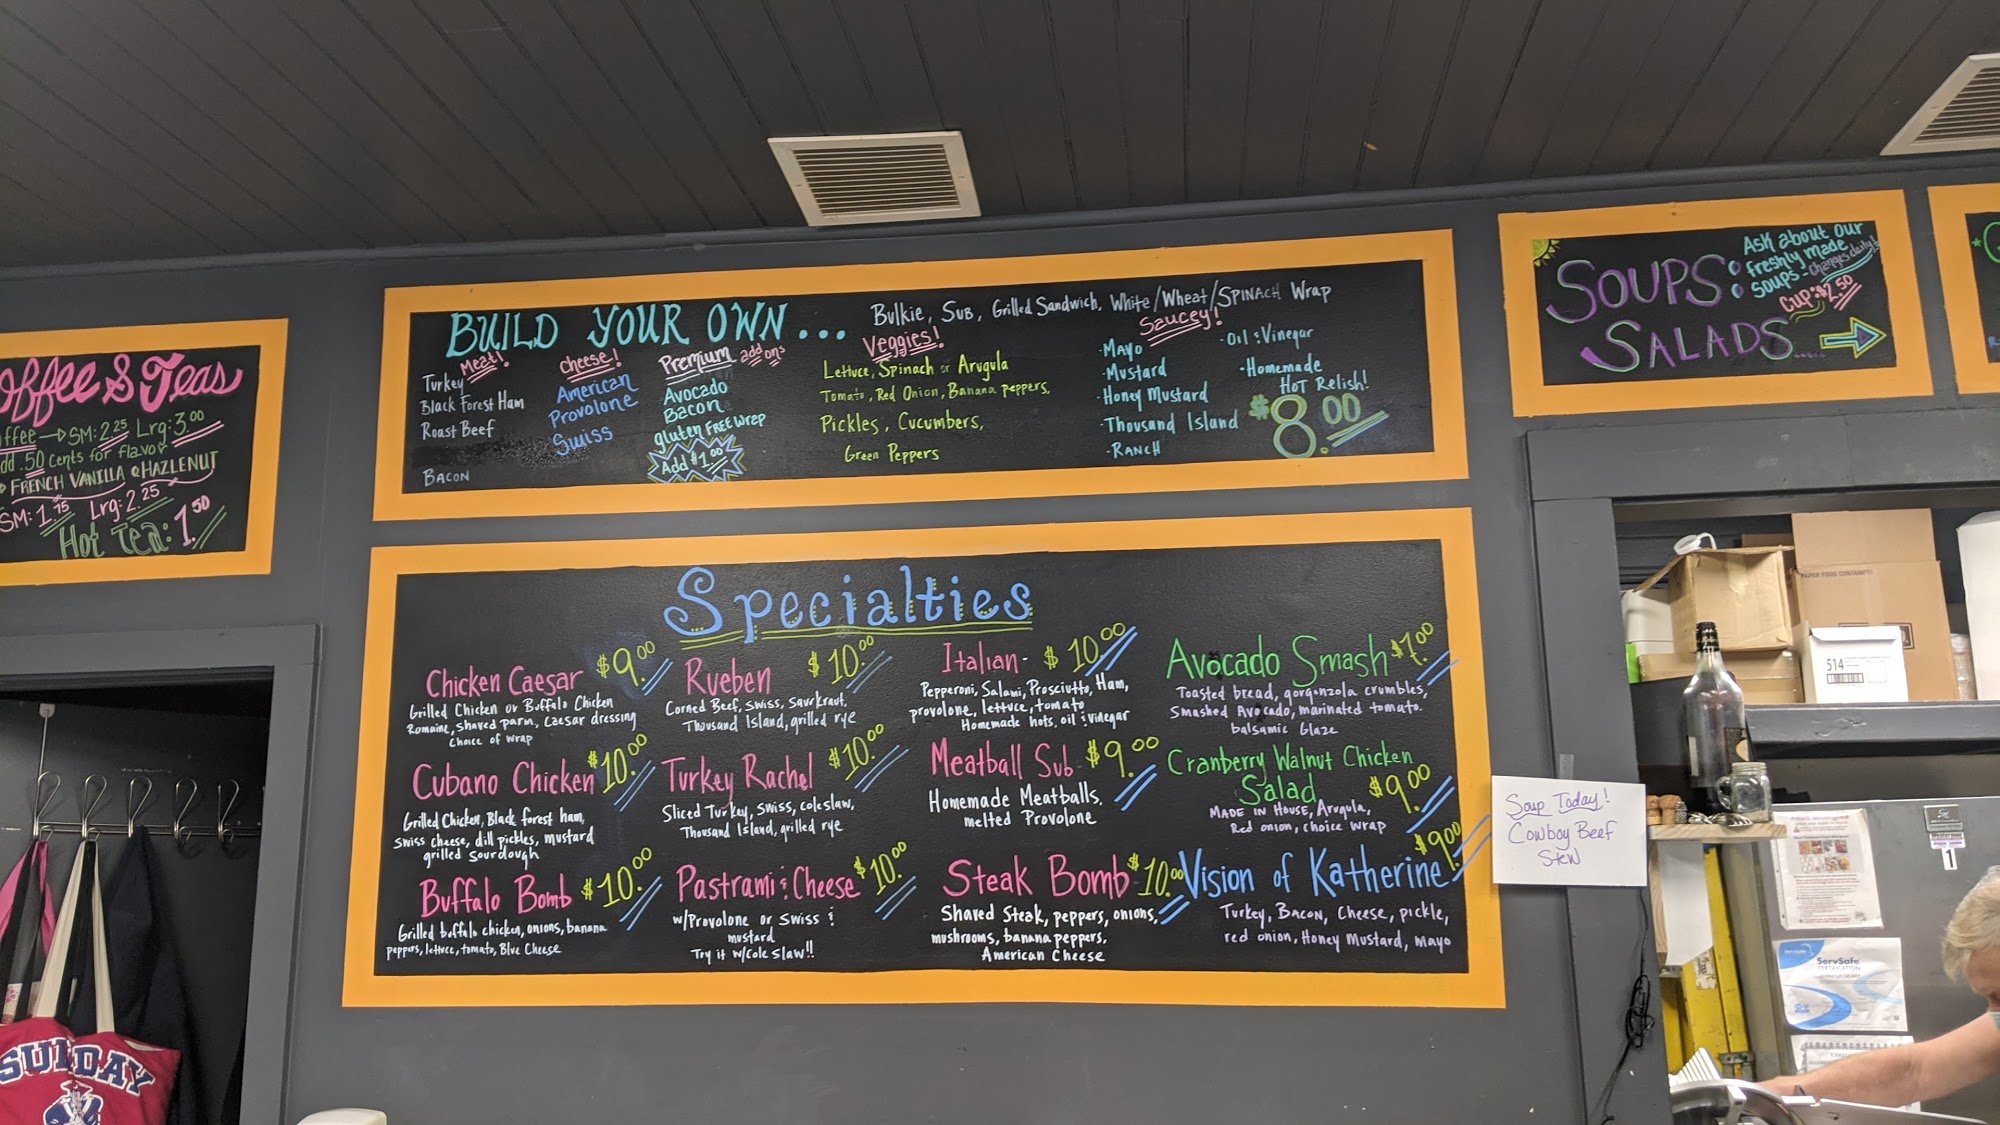 Coffee & Teas
Coffee → SM: 2.25 Lrg: 3.00
Add .50 cents for flavor
FRENCH VANILLA & HAZLENUT
SM: 1.75 Lrg: 2.25
Hot Tea: 1.50
BUILD YOUR OWN...
Bulkie, Sub, Grilled Sandwich, White/Wheat/SPINACH Wrap
Meat!
Turkey
Black Forest Ham
Roast Beef
BACON
cheese!
American
Provolone
Swiss
Premium add ons
Avocado
Bacon
gluten FREE wrap
Add $1.00
Veggies!
Lettuce, Spinach or Arugula
Tomato, Red Onion, Banana peppers,
Pickles, Cucumbers,
Green Peppers
Saucey!
-Mayo
-Mustard
-Honey Mustard
-Thousand Island
-RANCH
-Oil & Vinegar
-Homemade
HOT Relish!
$8.00
SOUPS
Ask about our
freshly made
soups - changes daily!
Cup: $2.50
SALADS.....
Specialties
Chicken Caesar $9.00
Grilled Chicken or Buffalo Chicken
Romaine, shaved parm, caesar dressing
choice of wrap
Cubano Chicken $10.00
Grilled Chicken, Black forest ham,
Swiss cheese, dill pickles, mustard
grilled sourdough
Buffalo Bomb $10.00
Grilled buffalo chicken, onions, banana
peppers, lettuce, tomato, Blue Cheese
Rueben $10.00
Corned Beef, Swiss, Saurkraut,
Thousand Island, grilled rye
Turkey Rachel $10.00
Sliced Turkey, Swiss, coleslaw,
Thousand Island, grilled rye
Pastrami & Cheese $10.00
w/Provolone or Swiss &
mustard
Try it w/cole slaw!!
Italian - $10.00
Pepperoni, Salami, Prosciutto, Ham,
provolone, lettuce, tomato
Homemade hots, oil & vinegar
Meatball Sub - $9.00
Homemade Meatballs,
melted Provolone
Steak Bomb $10.00
Shaved Steak, peppers, onions,
mushrooms, banana peppers,
American Cheese
Avocado Smash $7.00
Toasted bread, gorgonzola crumbles,
Smashed Avocado, marinated tomato.
balsamic Glaze
Cranberry Walnut Chicken
Salad $9.00
MADE IN HOUSE, Arugula,
Red onion, choice wrap
Vision of Katherine $9.00
Turkey, Bacon, Cheese, pickle,
red onion, Honey Mustard, mayo
Soup Today!
Cowboy Beef
Stew
PAPER FOOD CONTAINER
514
1
ServSafe
CERTIFICATION
SUNDAY